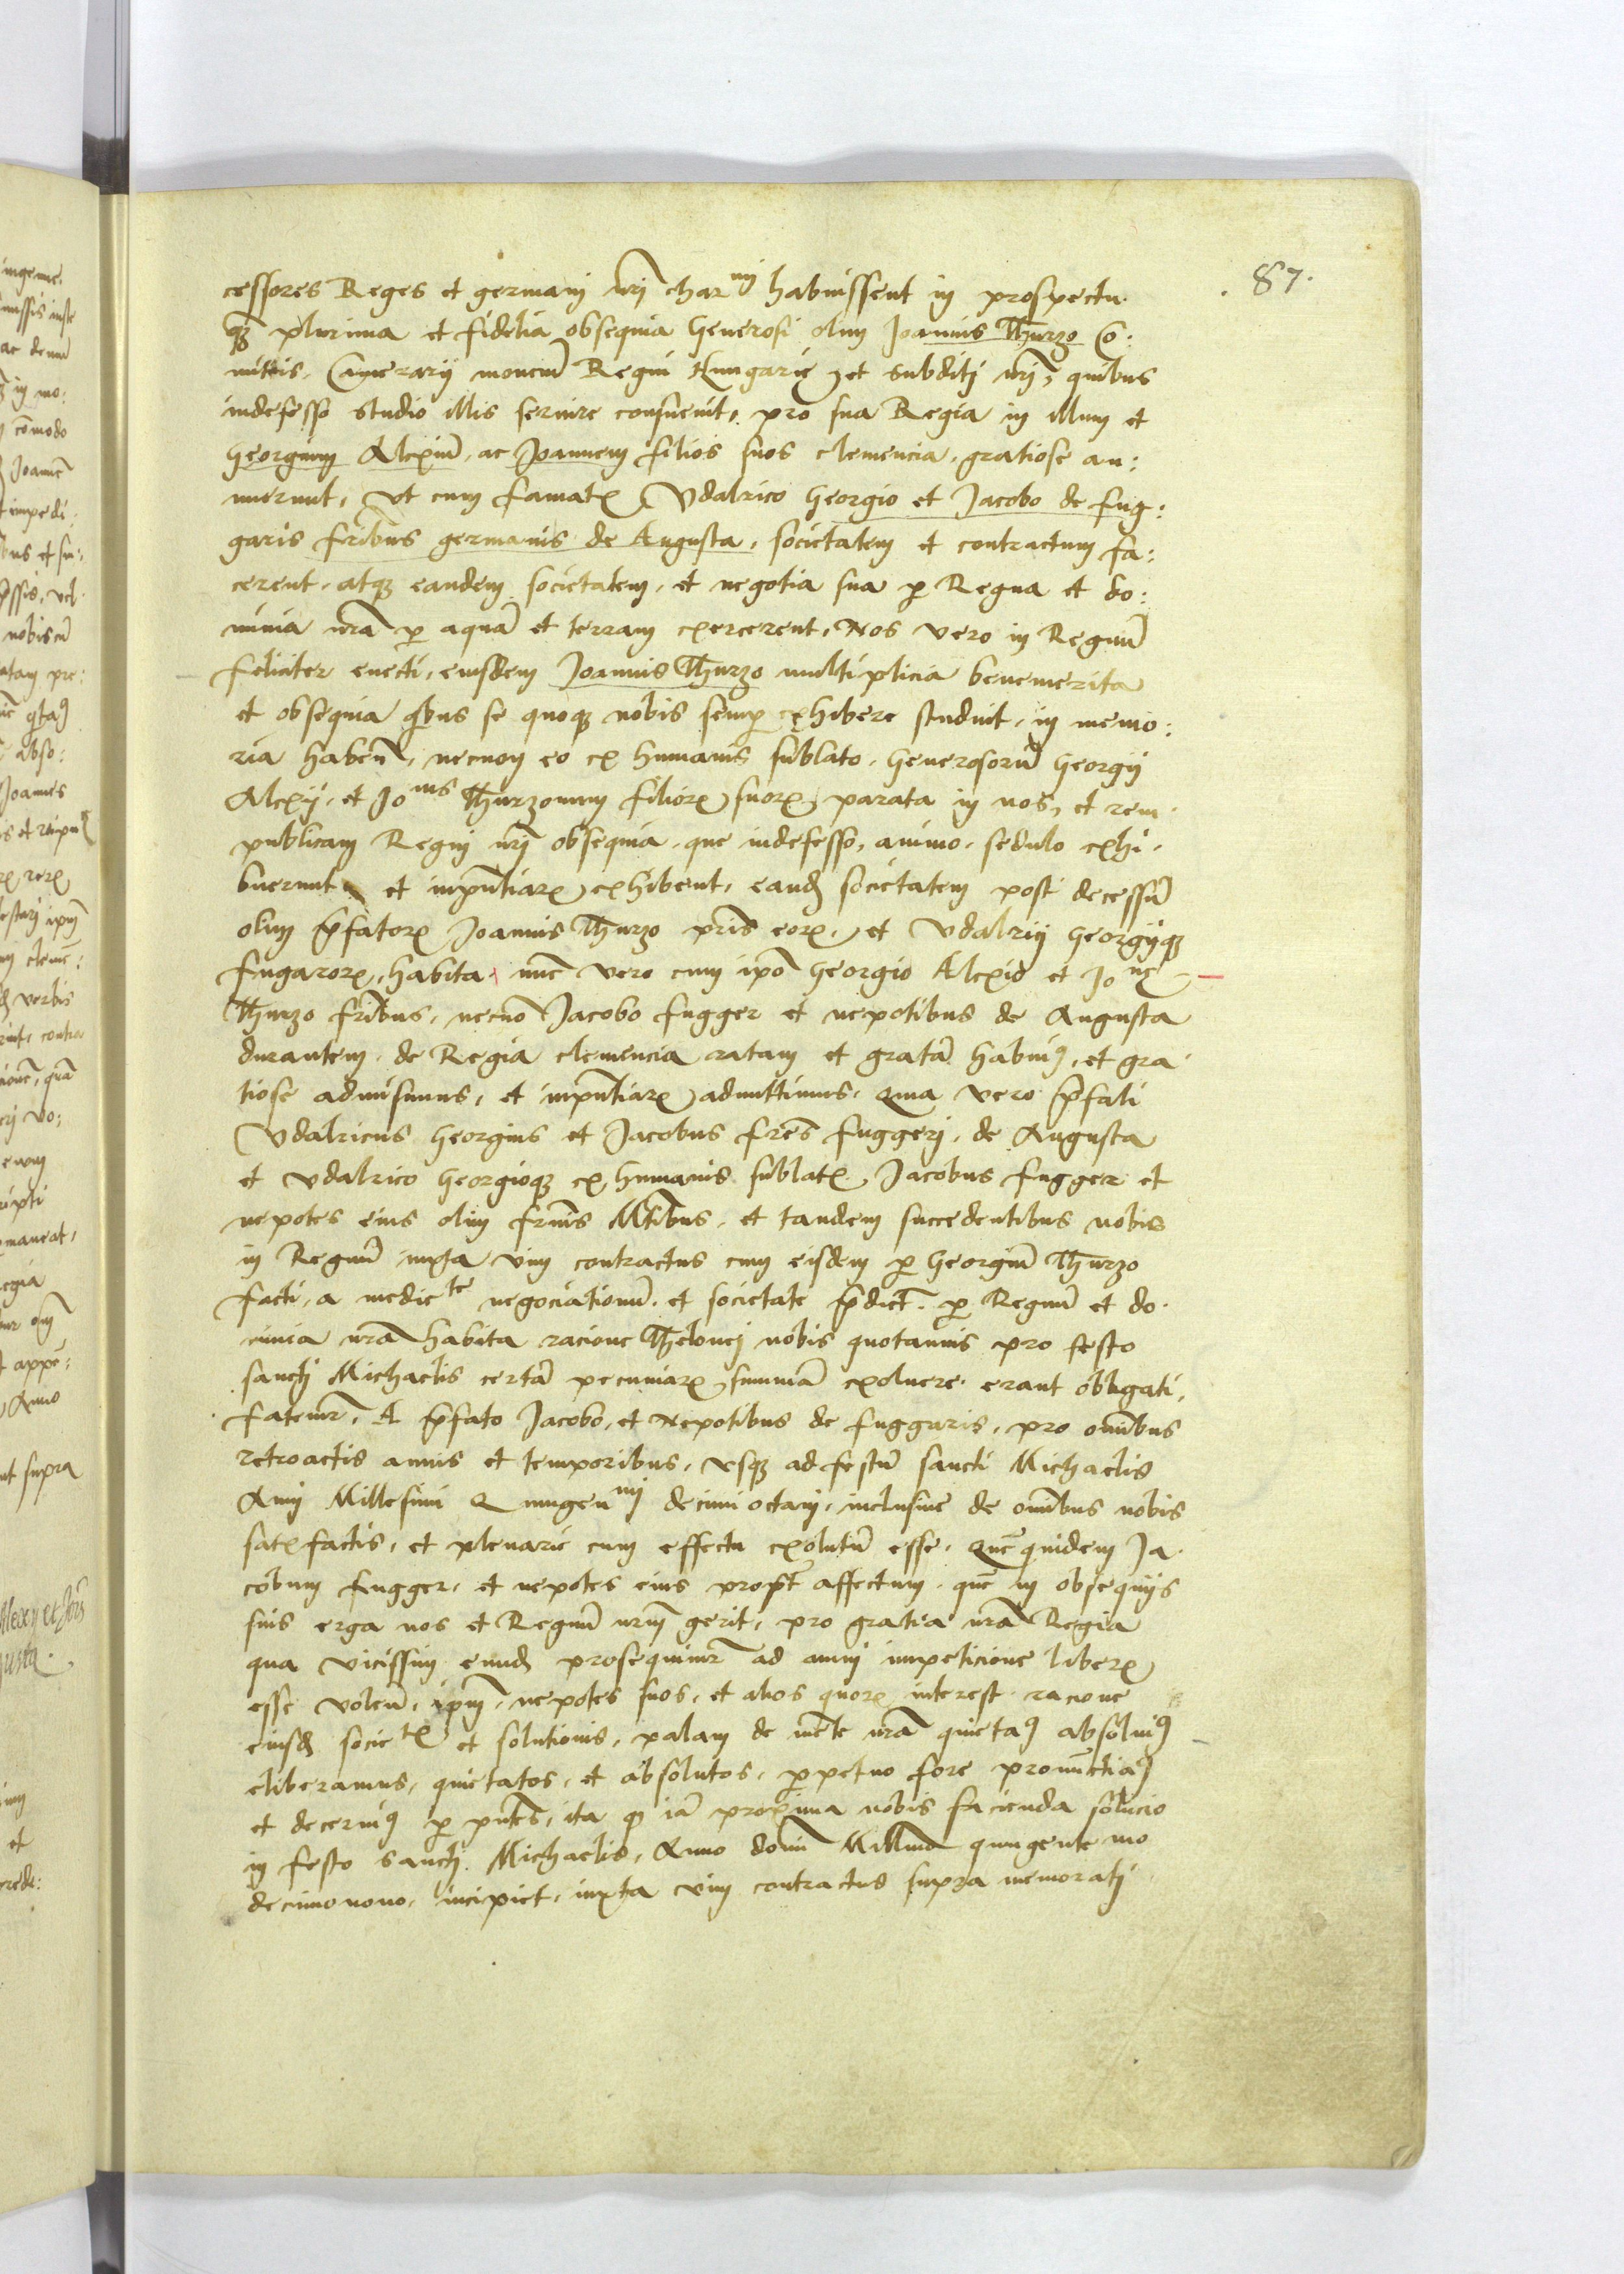 87.
cessores Reges et germani nrj̃ charmj habuissent in prospectu.
q̃ plurima et fidelia obsequia Generosi olim Joannis Thurzo Co:
mitis, Camerarij moneta᷑ Regni Hungarie, et subditj nrj̃, quibus
indefesso studio illis seruire consueuit, pro sua Regia in illum et
Georgium Alexiũ, ac Joannem filios suos clemencia, gratiose an:
nuerunt, Vt cum famatꝭ Vdalrico Georgio et Jacobo de Fug:
garis frĩbus germanis de Augusta, societatem et contractum fa:
cerent, atqꝫ eandem societatem, et negotia sua ꝑ Regna et do:
minia nrã ꝑ aquã et terram exercerent, Nos vero in Regnũ
feliciter euecti, eiusdem Joannis Thurzo multiplicia benemerita
et obsequia qͥbus se quoqꝫ nobis semꝑ exhibere studuit, in memo:
ria habeñ, necnon eo ex humanis sublato, Generosorũ Georgij
Alexij, et Jonis Thurzonum filioꝝ suoꝝ parata in nos, et rem
publicam Regni nrj̃ obsequia, que indefesso, animo, sedulo exhi.
buerunt et inpñtiaꝝ exhibent, eandꝫ societatem post decessũ
olim p̃fatoꝝ Joannis Thurzo pr̃is eoꝝ, et Vdalrici Georgijqꝫ
Fugaroꝝ, habita, nũc vero cum ip̃o Georgio Alexio et Jone
Thurzo frĩbus, necnõ Jacobo Fugger et nepotibus de Augusta
durantem, de Regia clemencia ratam et gratã habuimꝰ, et gra
tiose admisimus, et inpñtiaꝝ admittimus, Quia vero p̃fati
Vdalricus Georgius et Jacobus frẽs Fuggerj, de Augusta
et Vdalrico Georgioqꝫ ex humanis sublatꝭ, Jacobus Fugger et
nepotes eius olim frñis Mtĩbus, et tandem succedentibus nobis
in Regnũ iuxta vim contractus cum eisdem ꝑ Georgiũ Thurzo
facti, a medietᵗᵉ negociationũ, et societate p̃dict̃, ꝑ Regnũ et do.
minia nrã habita racione Thelonei nobis quotannis pro festo
sanctj Michaelis certã pecuniaꝝ summã exoluere erant obligati,
fatemr̃, A p̃fato Jacobo, et Nepotibus de Fuggaris, pro omĩbus
retroactis annis et temporibus, vsqꝫ ad festũ sancti Michaelis
Anni Millesimi Quingenmj decimi octaui, inclusiue de omĩbus nobis
satꝭfactis, et plenarie cum effectu exolutũ esse, Quẽ quidem Ja.
cobum Fugger, et nepotes eius propt̃ affectum, quẽ in obsequijs
suis erga nos et Regnũ nrm̃ gerit, pro gratia nrã Regia
qua vicissim eundꝫ prosequimr̃ ad omnj impeticione liberꝭ
esse voleñ, ipm̃, nepotes suos, et alios quoꝝ interest racione
eiusdꝫ societꝭ et solutionis, palam de mẽte nrã quietamꝰ absoluimꝰ
eliberamus, quietatos, et absolutos, ꝑpetuo fore pronũctiamꝰ
et decernimꝰ ꝑ pñtes, ita ꝙ iã proxima nobis facienda solucio
in festo Sanctj Michaelis, Anno domĩ Millmo quingentemo
decimonono, incipiet, iuxta vim contractus supra memoratj